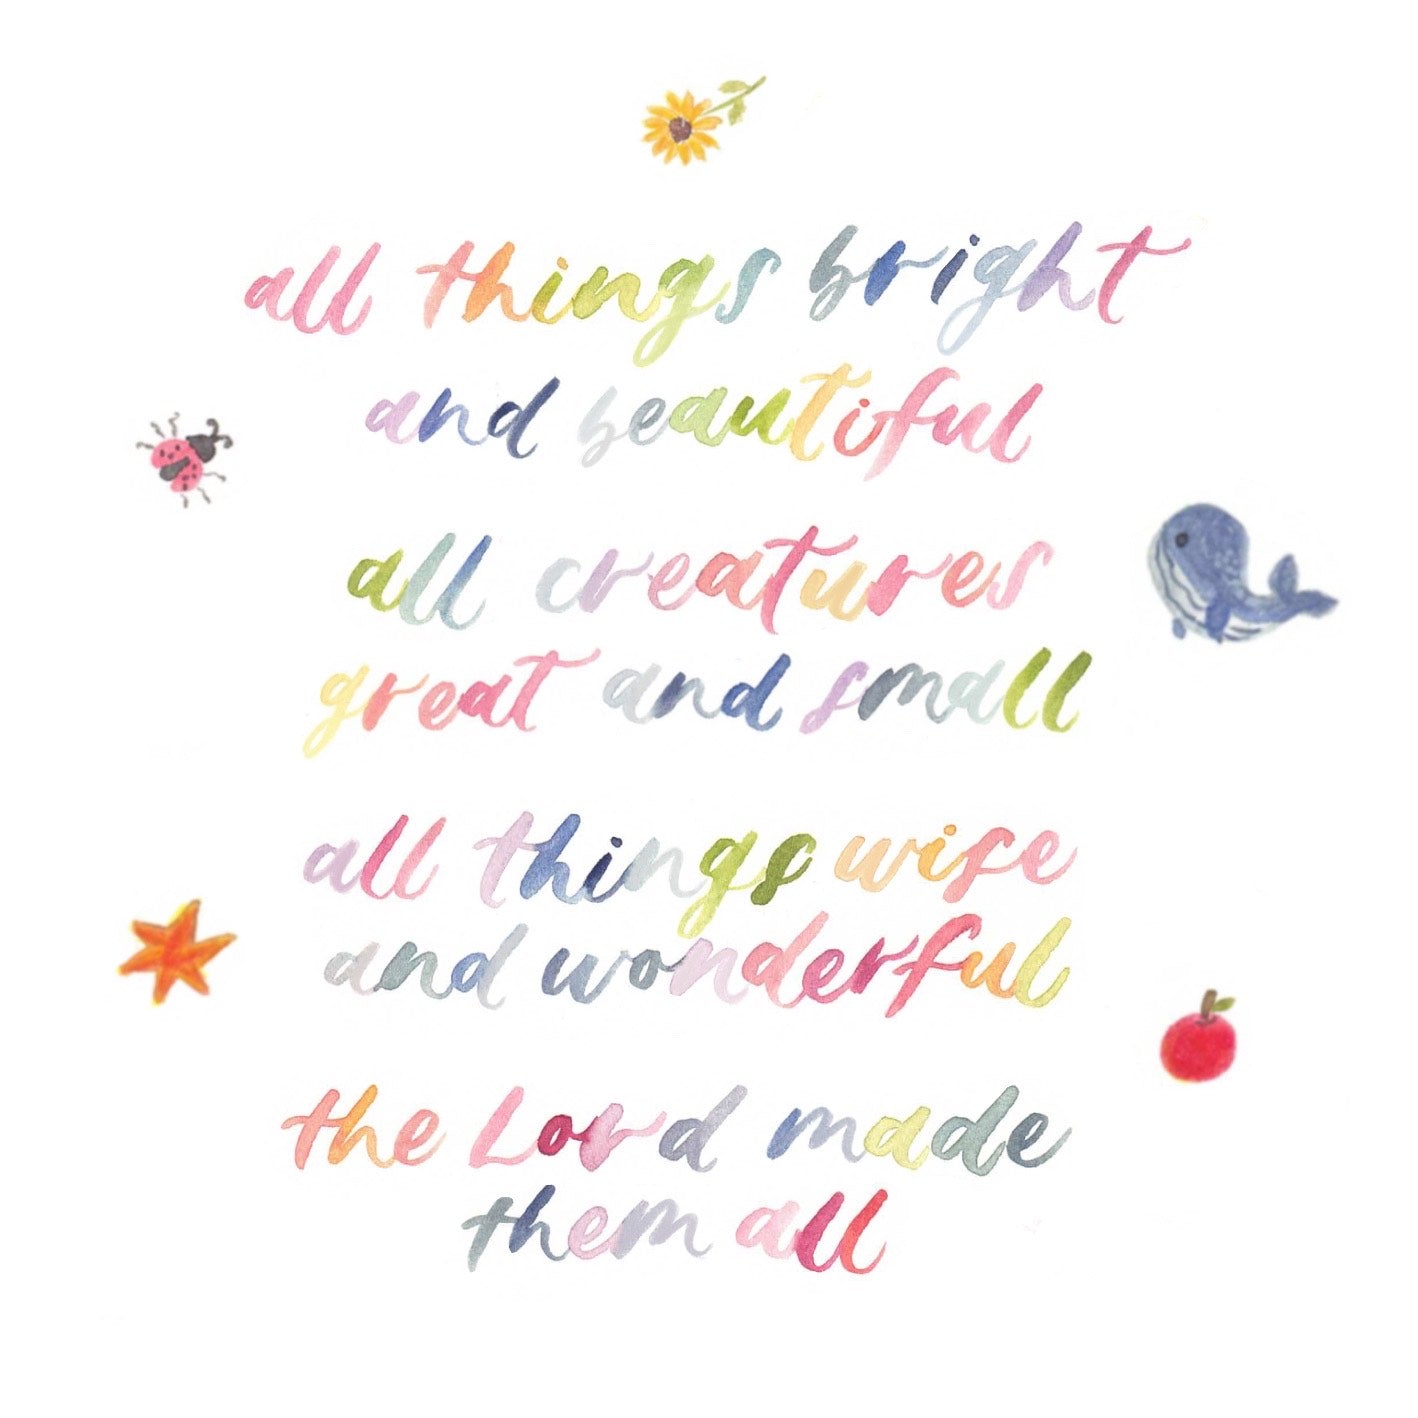 all things bright
and beautiful
all creatures
great and small
all things wise
and wonderful
the Lord made
them all